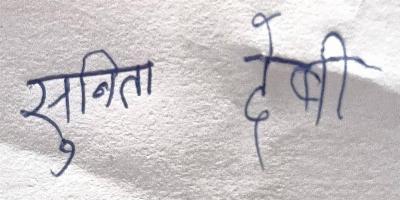 सुनिता देबी